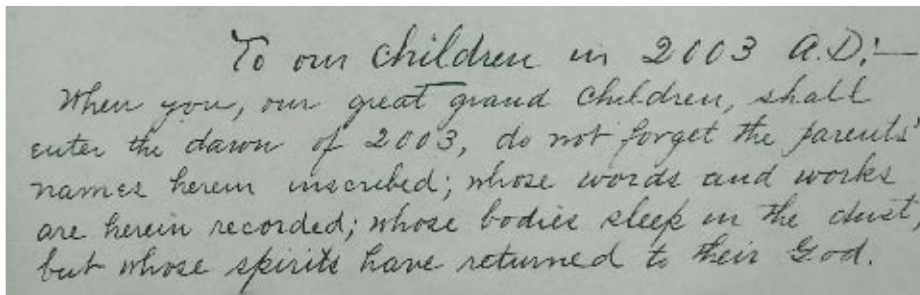 To our children in 2003 A.D.:—
When you, our great grand children, shall
enter the dawn of 2003, do not forget the parents'
names herein inscribed; whose words and works
are herein recorded; whose bodies sleep in the dust,
but whose spirits have returned to their God.